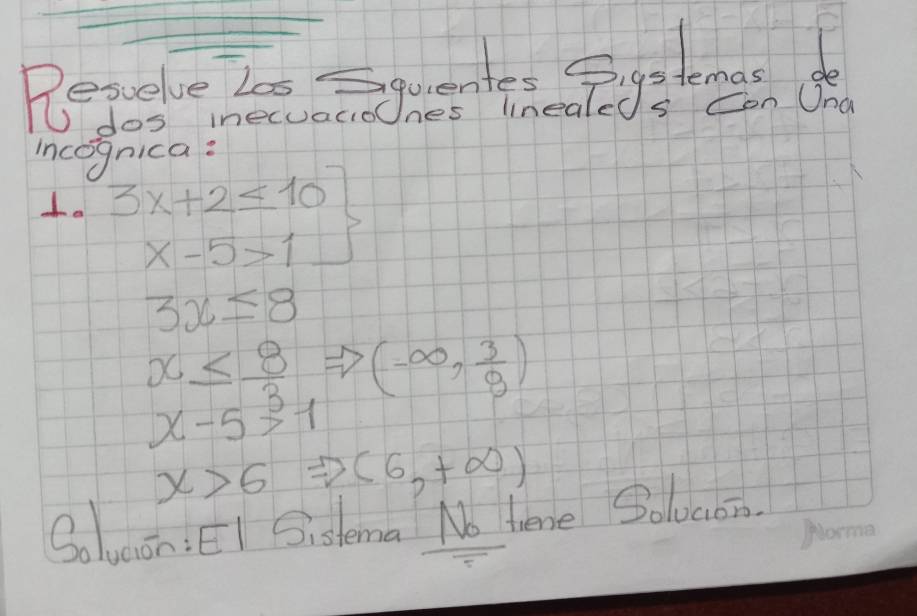 Resuelve Los Siguientes Sigstemas de
dos inecuaciones linealeds Con Una
incógnica:
1. 3x+2≤10}
x-5>1
3x≤8
x≤8/3 ⇒(-∞, 3/8)
x-5>1
x>6 ⇒(6,+∞)
Solución: El Sistema No tiene Solución.
Norma